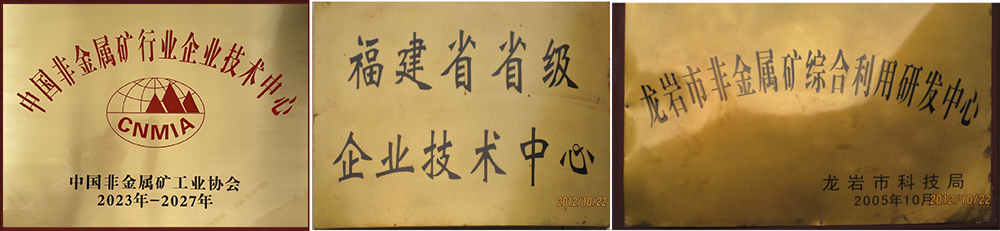 中国非金属矿行业企业技术中心
CNMIA
中国非金属矿工业协会
2023年-2027年
福建省省级
企业技术中心
2012/10/22
龙岩市非金属矿综合利用研发中心
龙岩市科技局
2005年10月
2012/10/22